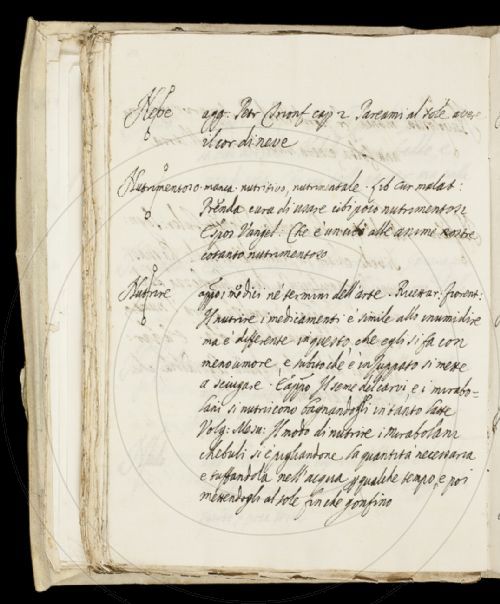 Neve agg: Petr Trionf cap 2 Pareami al sole avere
il cor di neve
Nutrimentoso manca nutritivo, nutrimentale. lib Cur malat:
Prenda cura di usare cibi poco nutrimentosi
Espos Vangel: Che è un cibo alle anime nostre
cotanto nutrimentoso
Nutrire appo i medici né termini dell'arte. Ricettar: fiorent:
Il nutrire i medicamenti è simile allo inumidire
ma è differente in questo, che egli si fa con
meno umore, e subito che è insuppato si mette
a seccare. E appo Il seme del carvi e i mirabo-
lani si nutricono bagnandogli in tanto latte
Volg: Mesu: Il modo di nutrire i Mirabolani
chebuli si è pigliandone la quantità necessaria
e tuffandola nell'acqua p qualche tempo, e poi
mettendogli al sole fin che gonfino